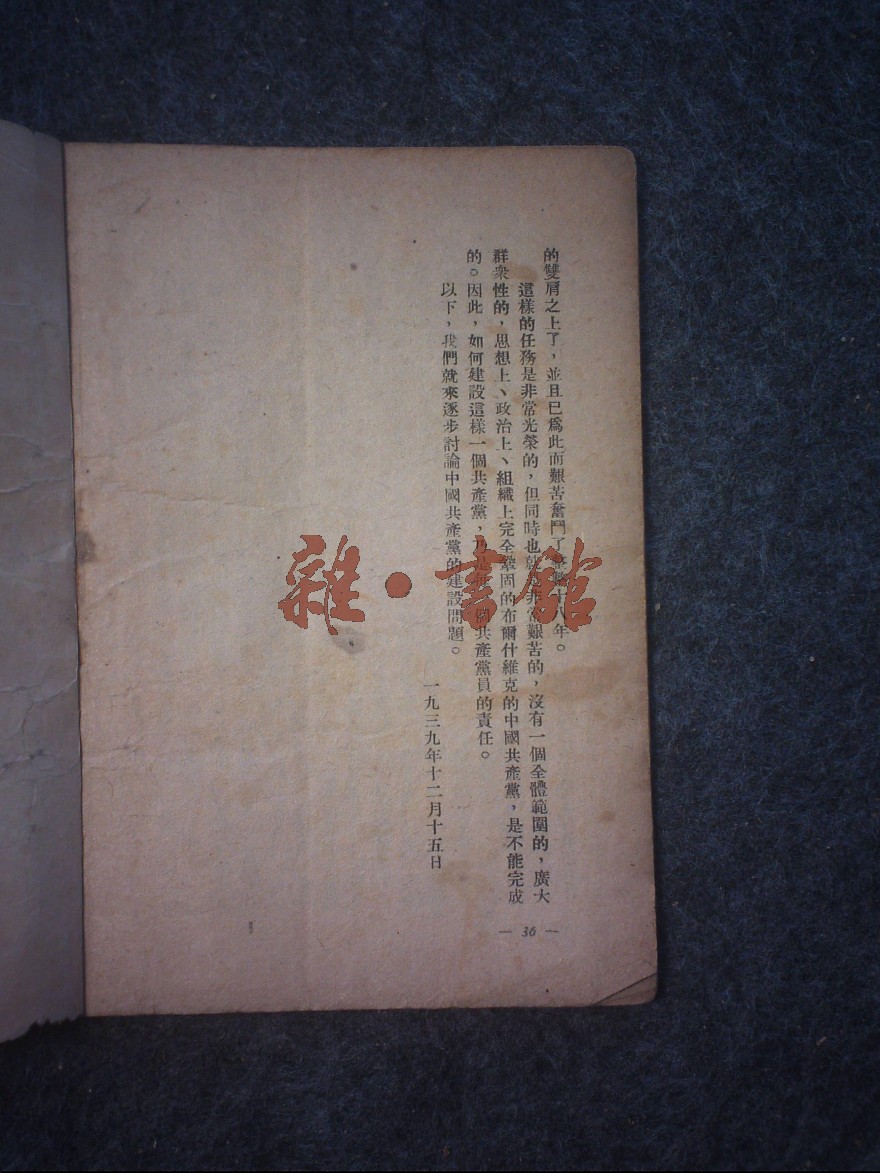 的雙肩之上了，並且已爲此而艱苦奮鬥了整整十八年。
這樣的任務是非常光榮的，但同時也就是非常艱苦的，沒有一個全體範圍的，廣大
群衆性的，思想上、政治上、組織上完全鞏固的布爾什維克的中國共產黨，是不能完成
的。因此，如何建設這樣一個共產黨，乃是每一個共產黨員的責任。
以下，我們就來逐步討論中國共產黨的建設問題。
一九三九年十二月十五日
— 36 —
雜·書館